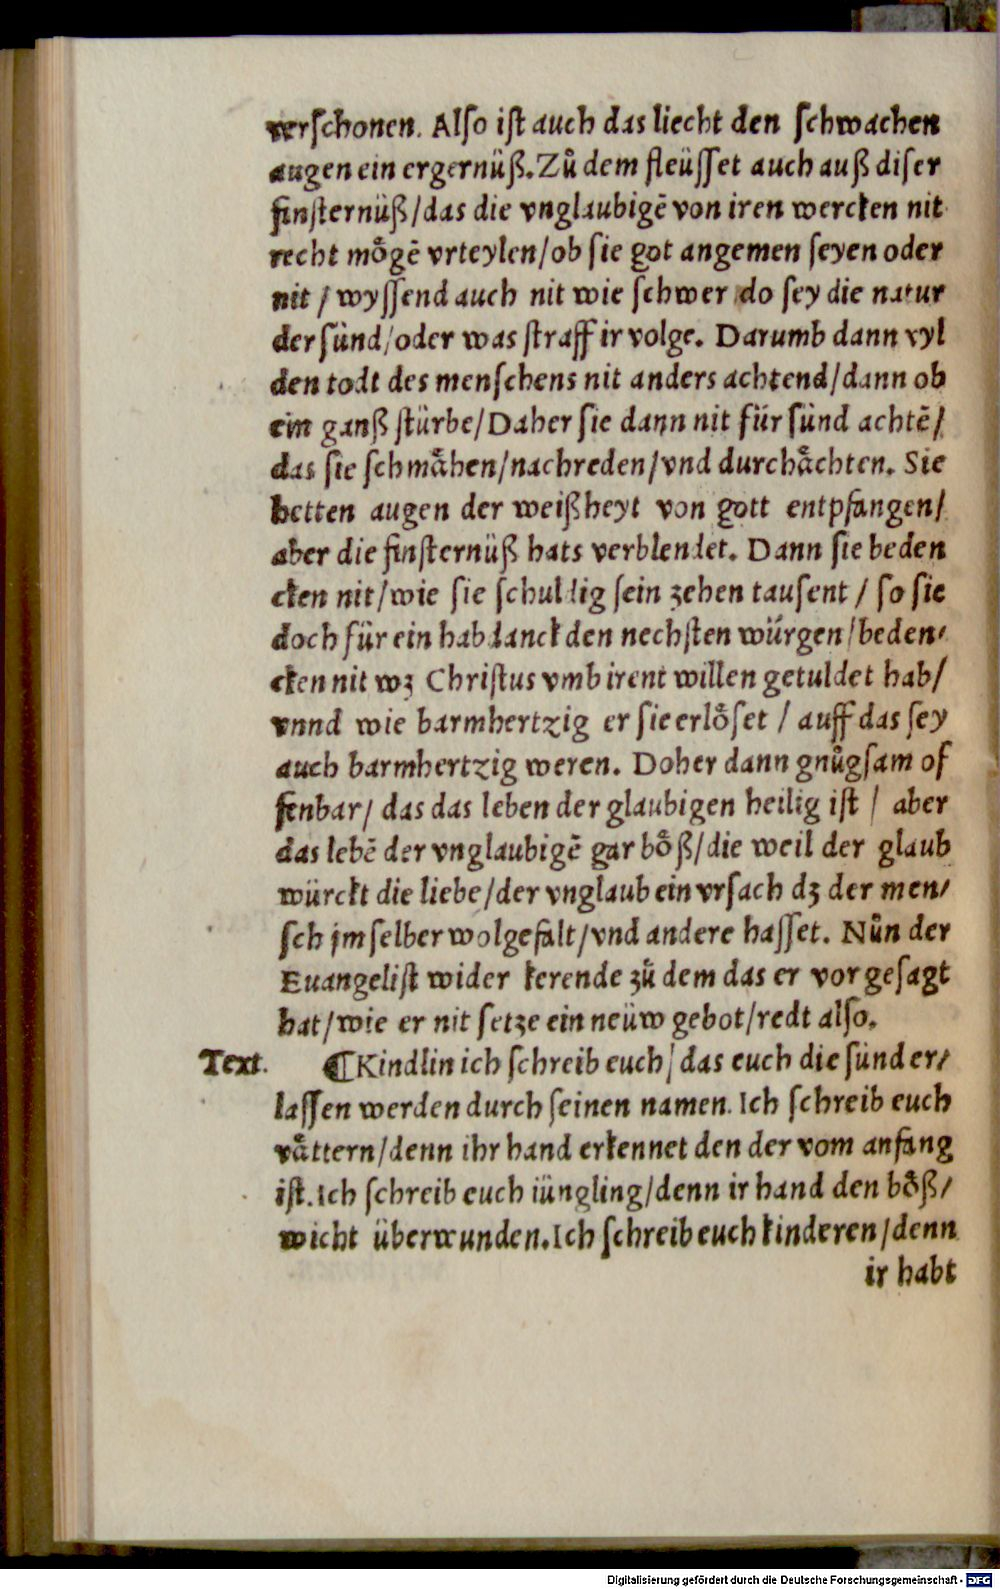 verſchonen. Alſo iſt auch das liecht den ſchwachen
augen ein ergernüß. Zů dem fleüſſet auch auß diſer
finſternüß/das die vnglaubigē von iren wercken nit
recht mo̊gē vrteylen/ob ſie got angemen ſeyen oder
nit / wyſſend auch nit wie ſchwer do ſey die natur
der ſünd/oder was ſtraff ir volge. Darumb dann vyl
den todt des menſchens nit anders achtend/dann ob
ein ganß ſtürbe/Daher ſie dann nit für ſünd achtē/
das ſie ſchmåhen/nachreden/vnd durchåchten. Sie
hetten augen der weißheyt von gott entpfangen/
aber die finſternüß hats verblendet. Dann ſie beden
cken nit/wie ſie ſchuldig ſein zehen tauſent / ſo ſie
doch für ein habdanck den nechſten würgen/beden⸗
cken nit wʒ Chriſtus vmb irent willen getuldet hab/
vnnd wie barmhertzig er ſie erlo̊ſet / auff das ſey
auch barmhertzig weren. Doher dann gnůgſam of
fenbar/ das das leben der glaubigen heilig iſt / aber
das lebē der vnglaubigē gar bo̊ß/die weil der glaub
würckt die liebe/der vnglaub ein vrſach dʒ der men⸗
ſch jm ſelber wolgefalt/vnd andere haſſet. Nůn der
Euangeliſt wider kerende zů dem das er vor geſagt
hat/wie er nit ſetze ein neüw gebot/redt alſo.
Text. ¶Kindlin ich ſchreib euch/das euch die ſünd er⸗
laſſen werden durch ſeinen namen. Ich ſchreib euch
våttern/denn ihr hand erkennet den der vom anfang
iſt. Ich ſchreib euch iüngling/denn ir hand den bo̊ß⸗
wicht überwunden. Ich ſchreib euch kinderen/denn
ir habt
Digitalisierung gefördert durch die Deutsche Forschungsgemeinschaft - DFG